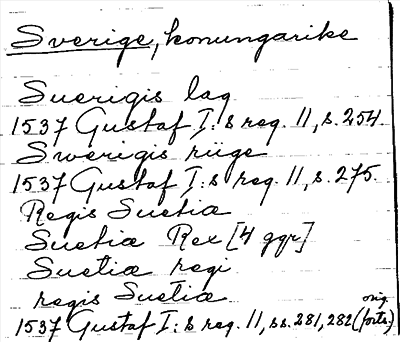 Sverige, konungarike
Suerigis lag
1537 Gustaf I:s reg. 11, s. 254.
Swerigis rüge
1537 Gustaf I:s reg. 11, s. 275.
Regis Suetiæ
Suetiæ Rex [4 ggr]
Suetiæ regi
regis Suetiæ
1537 Gustaf I:s reg. 11, ss. 281, 282 (orig. forts.)